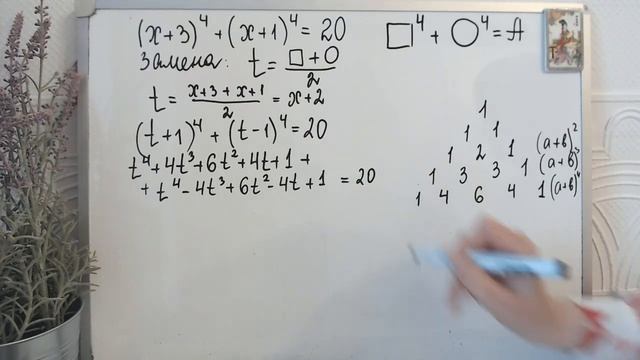 (x+3)⁴+(x+1)⁴=20
□⁴+○⁴=A
Замена: t=(□+○)/2
t=(x+3+x+1)/2=x+2
(t+1)⁴+(t-1)⁴=20
t⁴+4t³+6t²+4t+1+
+t⁴-4t³+6t²-4t+1=20
1
1 1
1 2 1 (a+b)²
1 3 3 1 (a+b)³
1 4 6 4 1 (a+b)⁴